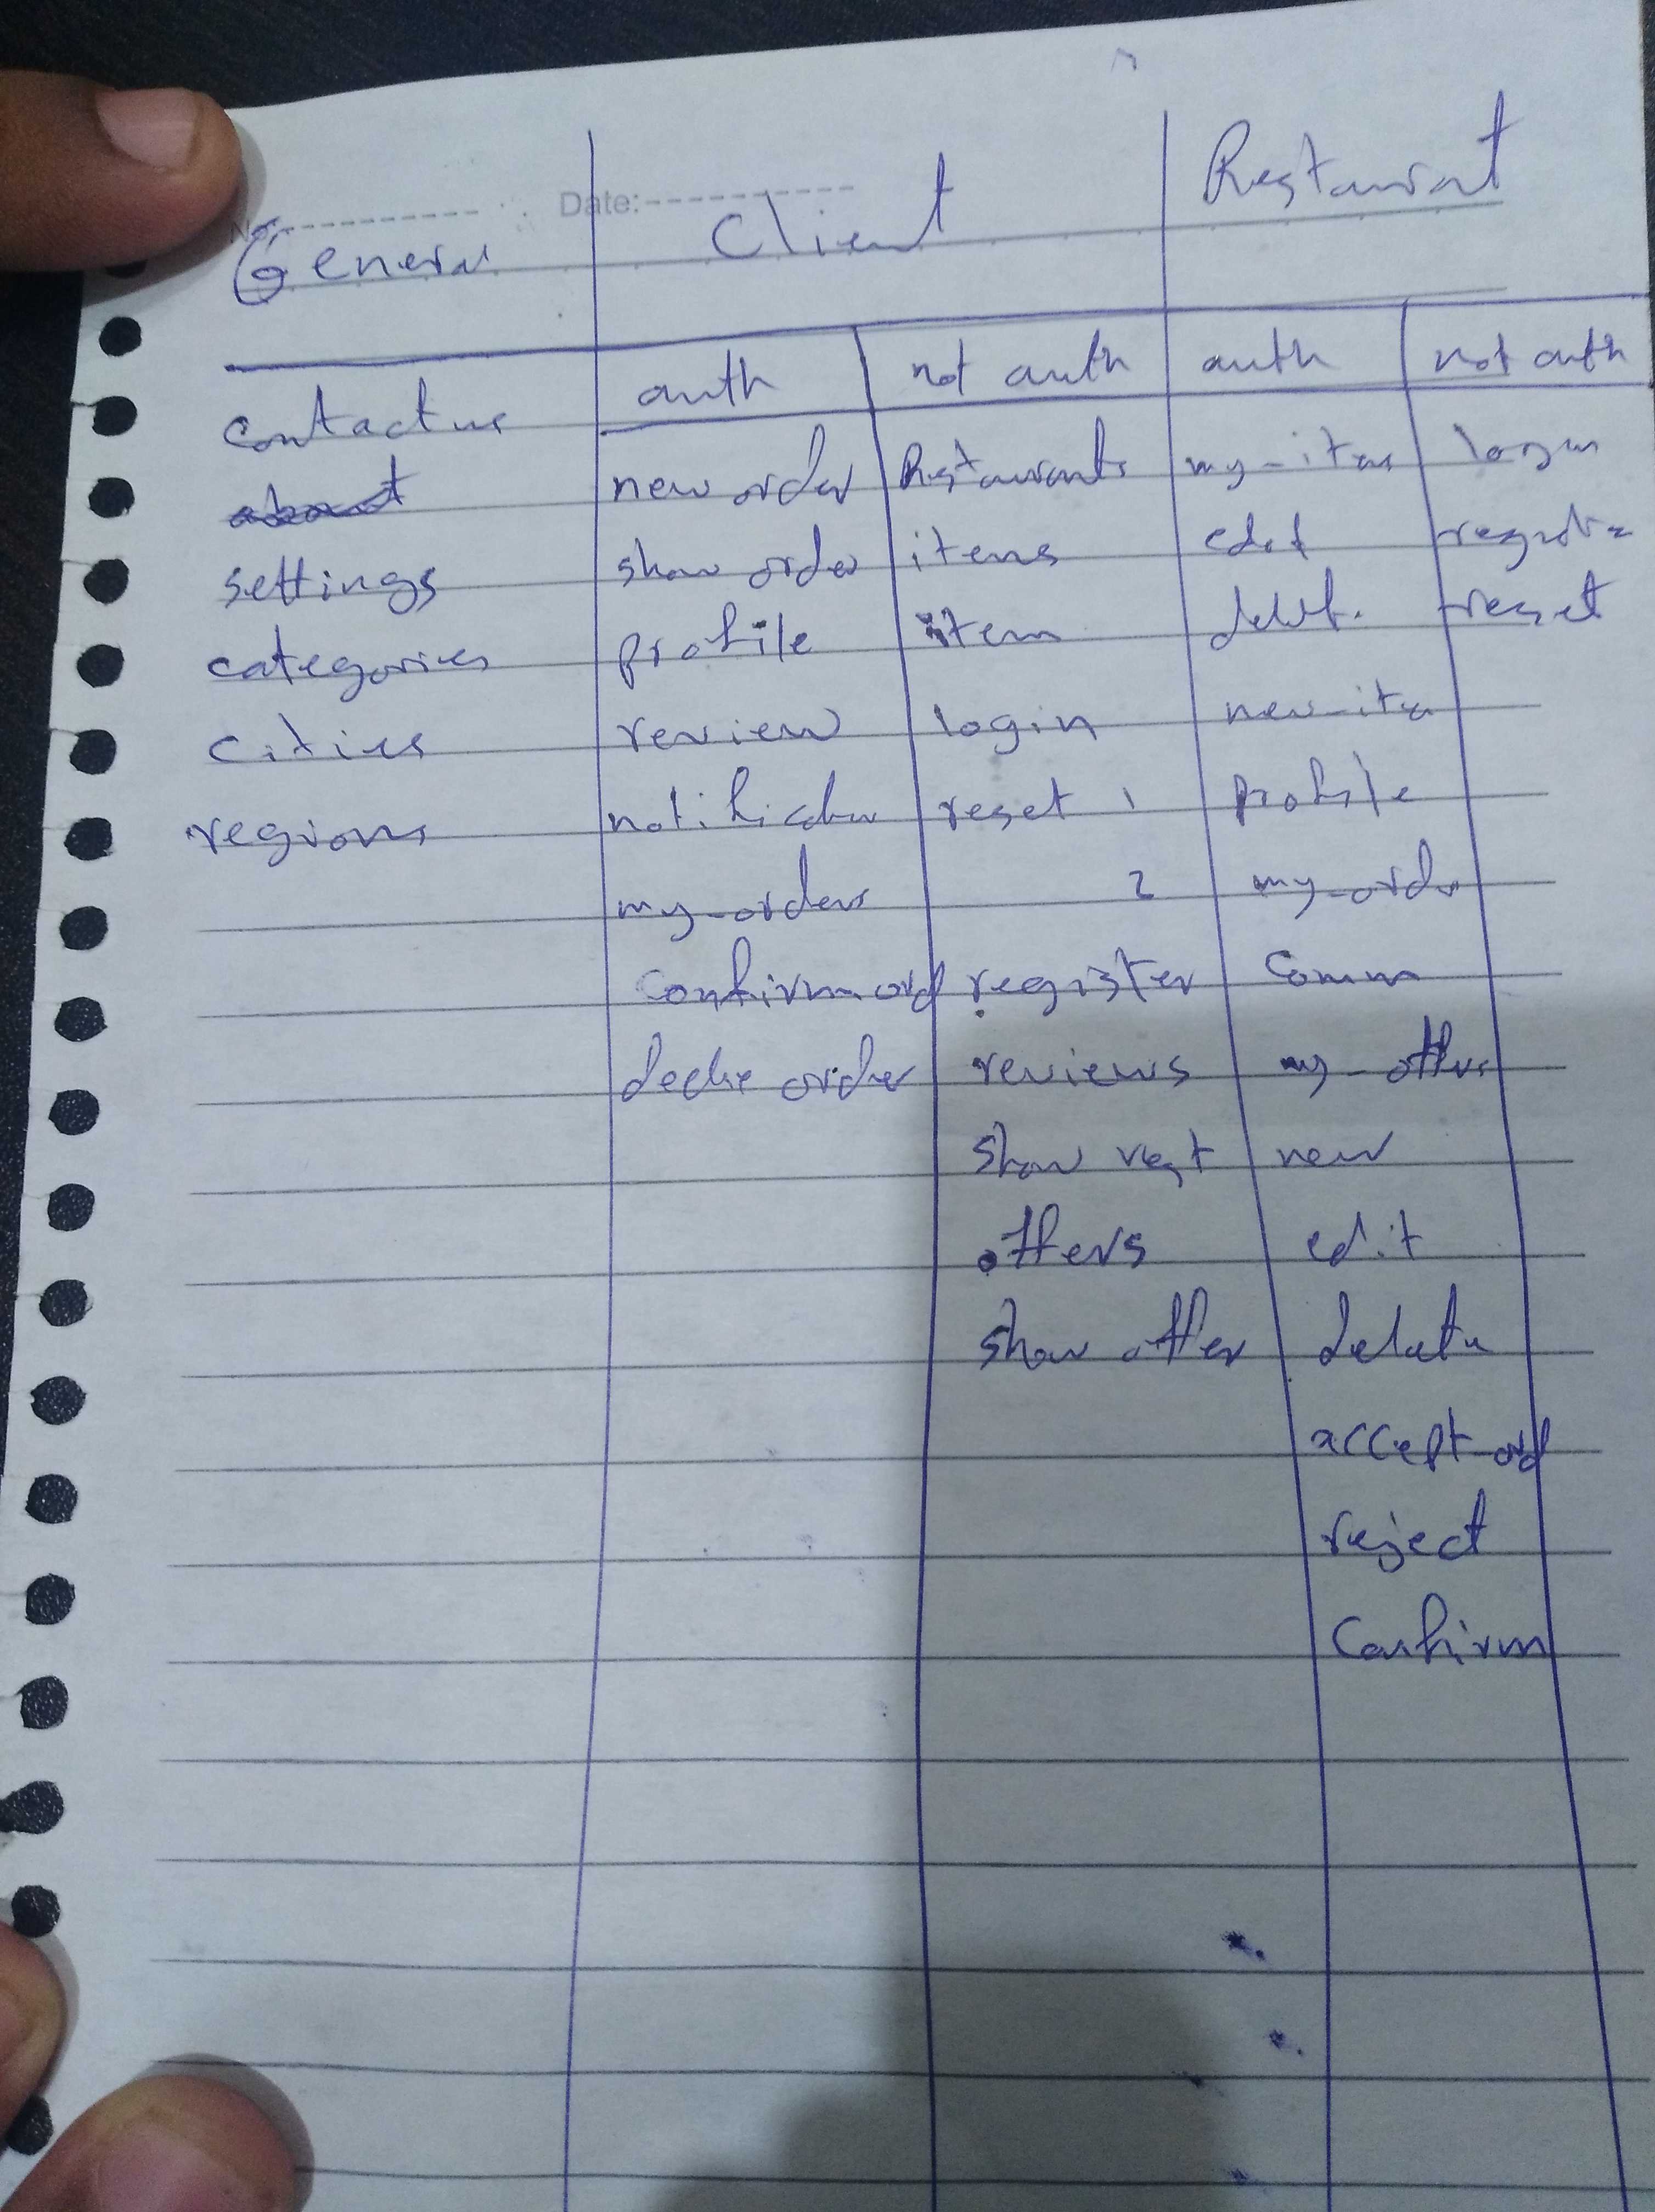 No. Date:
General Client Restaurant
auth not auth auth not auth
contact us
new order Restaurants my-items login
about
show order items edit register
settings
profile item delet. reset
categories
review login new-item
cities
notification reset 1 profile
regions
my-orders 2 my-order
confirm ord register Comm
declie order reviews my-offers
show rest new
offers edit
show offer delete
accept-ord
reject
Confirm